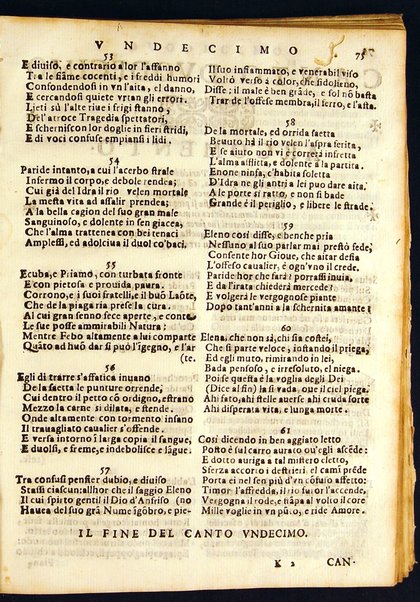 VNDECIMO 75
53
E diuiso, e contrario a lor l'affanno
Tra le fiãme cocenti, e i freddi humori
Confondendosi in vn l'aita, el danno,
E cercandosi quiete vrtan gli errori.
Lieti sù l'alte riue i frigi stanno,
Del'atroce Tragedia spettatori,
E scherniscon lor doglie in fieri stridi,
E di voci confuse empiansi i lidi.
54
Paride intanto, a cui l'acerbo strale
Infermo il corpo, e debole rendea;
Cui già del Ida il rio velen mortale
La mesta vita ad assalir prendea;
A la bella cagion del suo gran male
Sanguinoso, e dolente in sen giacea;
Che l'alma trattenea con bei tenaci
Amplessi, ed adolciua il duol co'baci.
55
Ecuba, e Priamo, con turbata fronte
E con pietosa e prouida paura.
Corrono, e i suoi fratelli, e il buõ Laõte,
Che de la piaga ria prese la cura.
Al cui gran senno fece aperte, e conte
Le sue possе ammirabili Natura:
Mentre Febo altamente a lui comparte
Quãto ad huõ dar si può l'ïgegno, e l'ar
(te.
56
Egli di trarre s'affatica inuano
De la saetta le punture orrende;
Cui dentro il petto cõ ordigno, estrano
Mezzo la carne si dilata, e stende.
Onde altamente con tormento insano
Il trauagliato caualier s'offende.
E versa intorno ï larga copia il sangue,
E duolsi, e freme, e indebolisce e lãgue.
57
Tra confusi pensier dubio, e diuiso
Stassi ciascun: allhor che il saggio Eleno
Il cui spirto gentil il Dio d'Anfriso (no
Hauea del suo grã Nume ïgõbro, e pie-
Il suo infiammato, e venerabil viso
Voltò verso color, che si dolieno,
Disse: il male è ben grãde, e sol nõ basta
Trar de l'offese membra, il ferro, e l'asta.
58
De la mortale, ed orrida saetta
Beuuto hà il rio velen l'aspra ferita,
E se aiuto non vi è correrà infretta
L'alma afflitta, e dolente à la partita.
Enone ninfa, c'habita soletta
D'Idra ne gli antri a lei puo dare aita.
A le porte si tratto, e non si bade
Grande è il periglio, e libere le strade.
59
Eleno così disse, e benche pria
Nessuno al suo parlar mai prestò fede;
Consente hor Gioue, che aitar desia
L'offeso caualier, è ogn'vno il crede.
Paride hor che farà? porrassi inuia,
E da l'irata chiederà mercede?
E volgerà le vergognose piante
Dopo tant'anni a la schernita amante?
60
Elena, che non sà, chi sia costei,
Che si parte veloce, instando il priega,
Ed egli muto, rimirando in lei,
Bada pensoso, e irresoluto, el niega.
Poise questa è la voglia degli Dei
(Dice al fin) là si vada, oue il ciel piega.
Ahi fato, ahi stelle auerse ahi cruda sorte
Ahi disperata vita, e lunga morte.
61
Così dicendo in ben aggiato letto
Posto è sul carro aurato ou'egli ascéde:
E dotto auriga a tal mistero eletto,
Sferza accorto i destrieri, el camï prẽde
Porta ei nel sen più d'vn cõfuso affetto:
Timor l'affredda, il rio furor l'accende,
Vergogna il rode, e riapa al volto il core
Mille voglie in vn punto, e ride Amore.
IL FINE DEL CANTO VNDECIMO.
K 2 CAN-